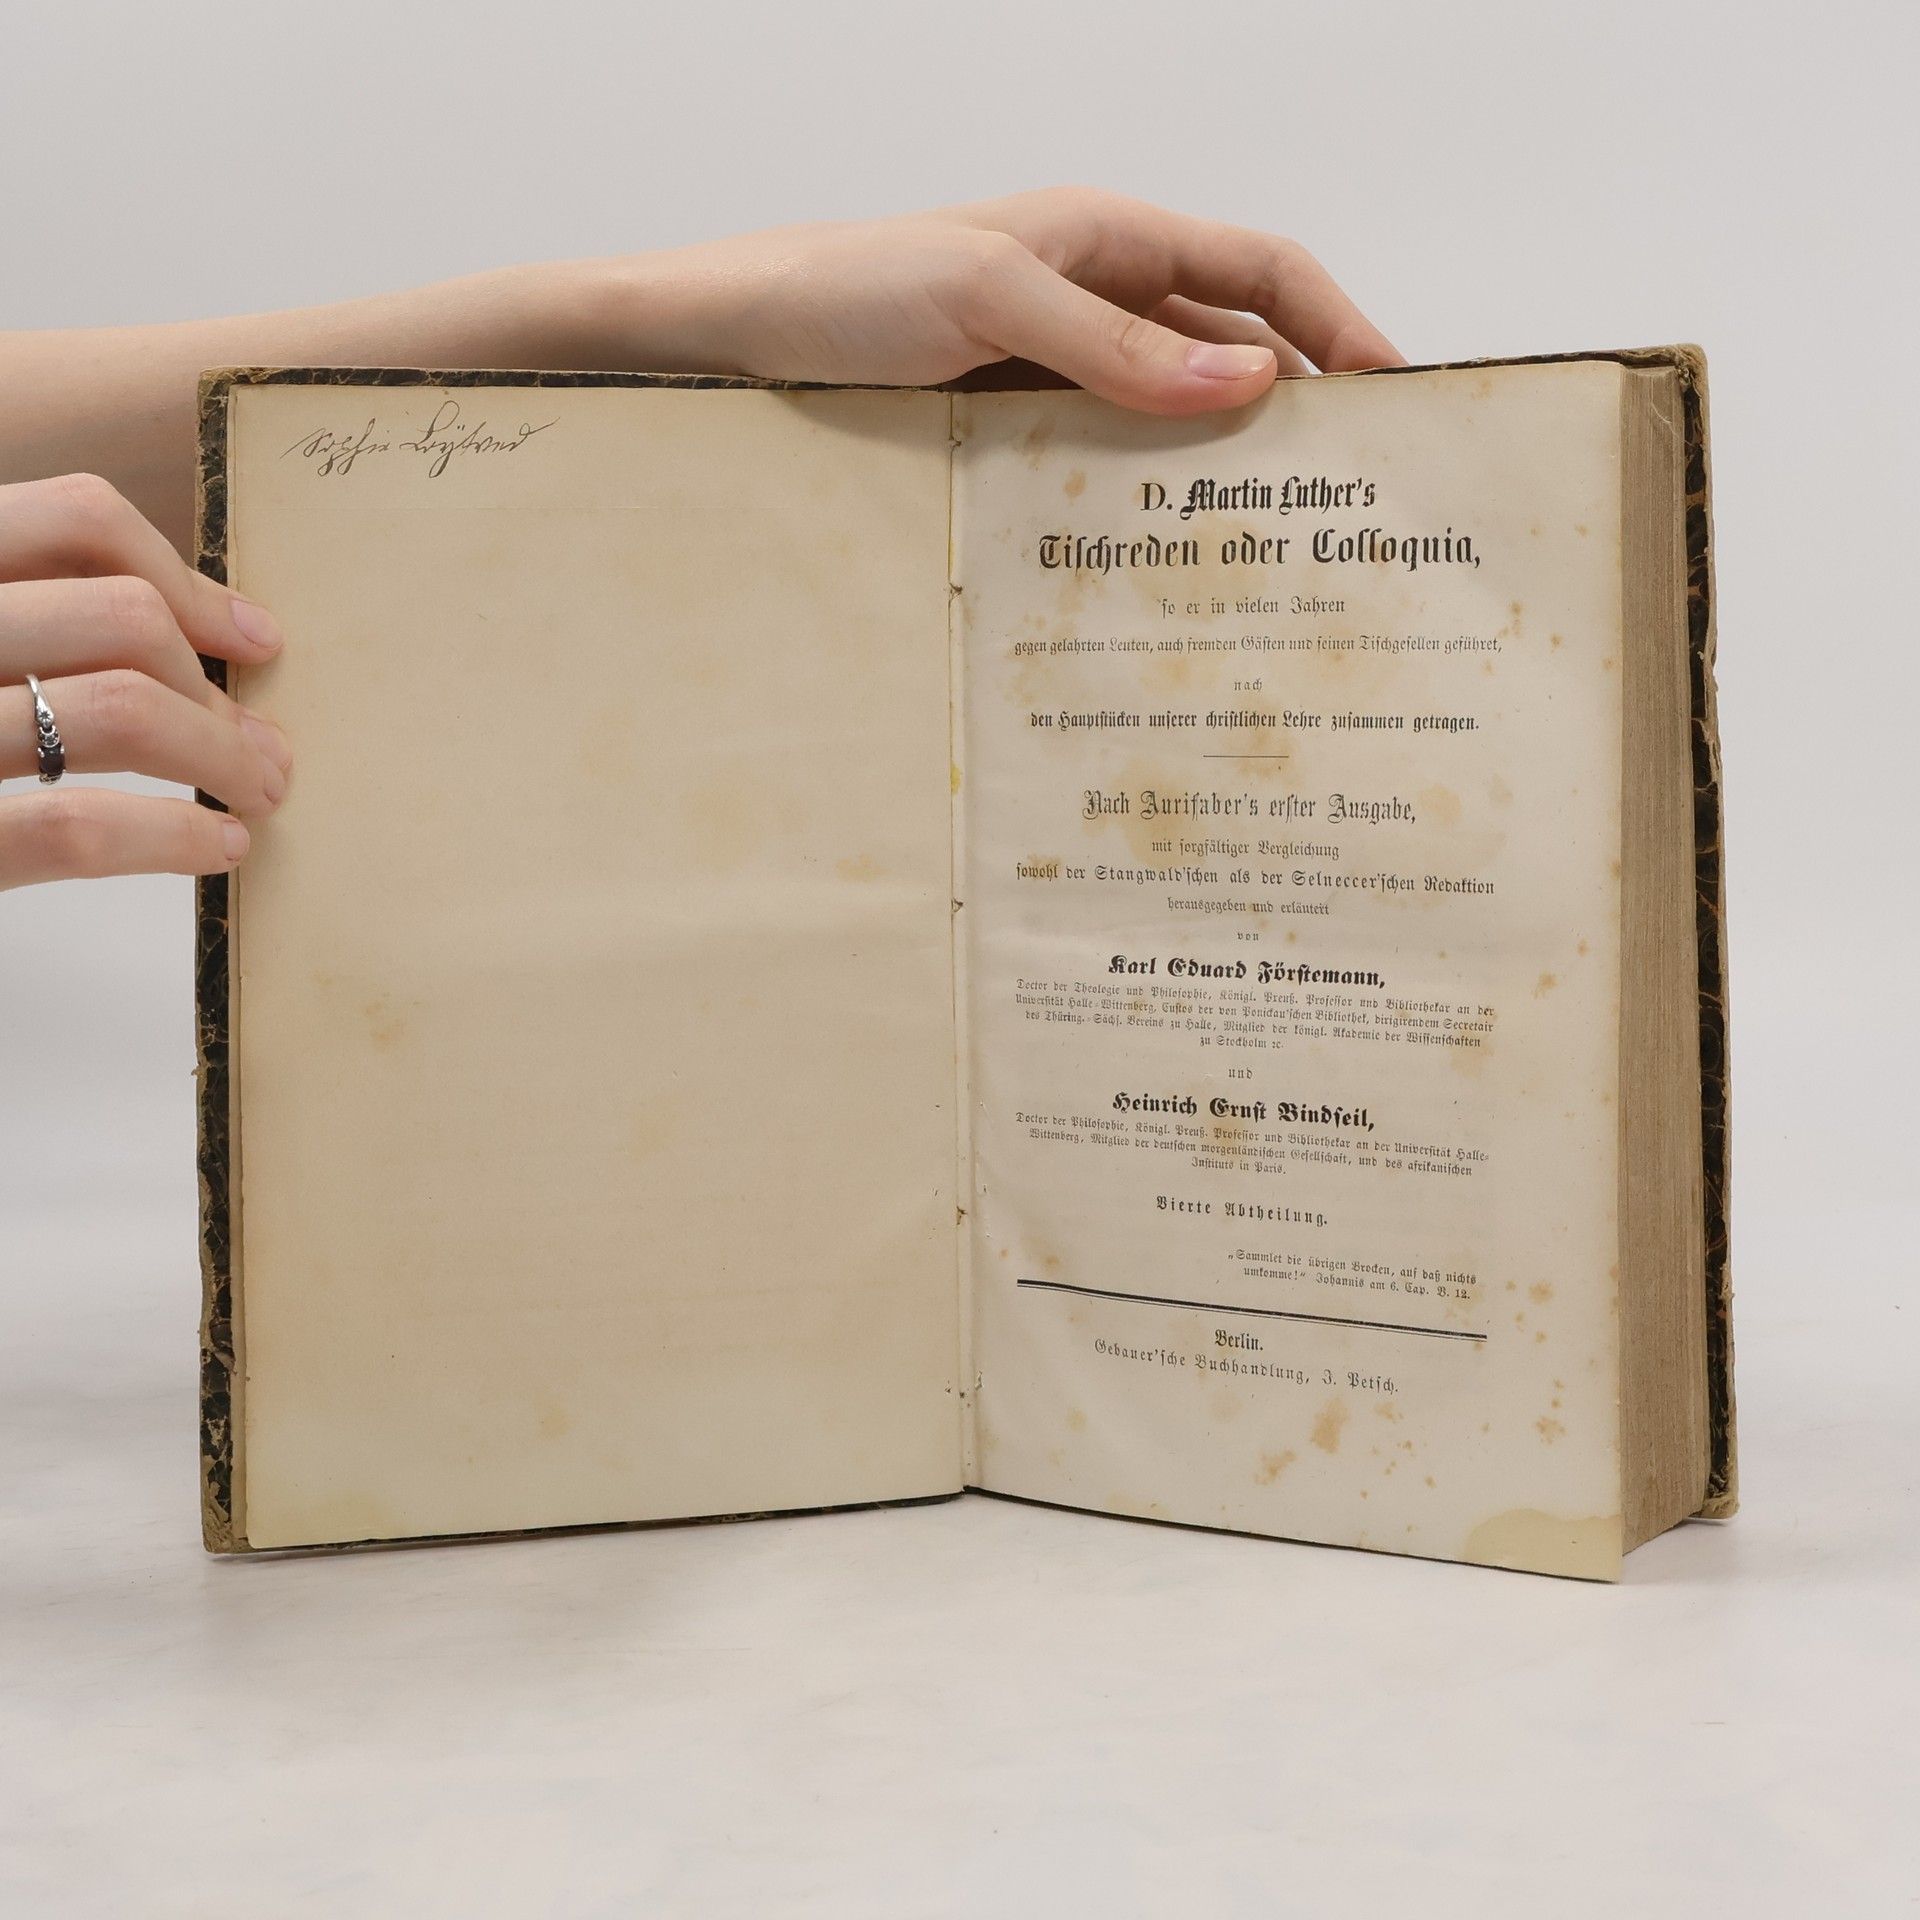 Sophie
D. Martin Luther's
Tischreden oder Colloquia,
so er in vielen Jahren
gegen gelahrten Leuten, auch fremden Gästen und seinen Tischgesellen geführet,
nach
den Hauptstücken unserer christlichen Lehre zusammen getragen.
Nach Aurifaber's erster Ausgabe,
mit sorgfältiger Vergleichung
sowohl der Stangwald'schen als der Selneccer'schen Redaktion
herausgegeben und erläutert
von
Karl Eduard Förstemann,
Doctor der Theologie und Philosophie, Königl. Preuß. Professor und Bibliothekar an der
Universität Halle-Wittenberg, Custos der von Ponickau'schen Bibliothek, dirigirendem Secretair
des Thüring.-Sächs. Vereins zu Halle, Mitglied der königl. Akademie der Wissenschaften
zu Stockholm ꝛc.
und
Heinrich Ernst Bindseil,
Doctor der Philosophie, Königl. Preuß. Professor und Bibliothekar an der Universität Halle-
Wittenberg, Mitglied der deutschen morgenländischen Gesellschaft, und des afrikanischen
Instituts in Paris.
Vierte Abtheilung.
„Sammlet die übrigen Brocken, auf daß nichts
umkomme!“ Johannis am 6. Cap. V. 12.
Berlin.
Gebauer'sche Buchhandlung, J. Petsch.